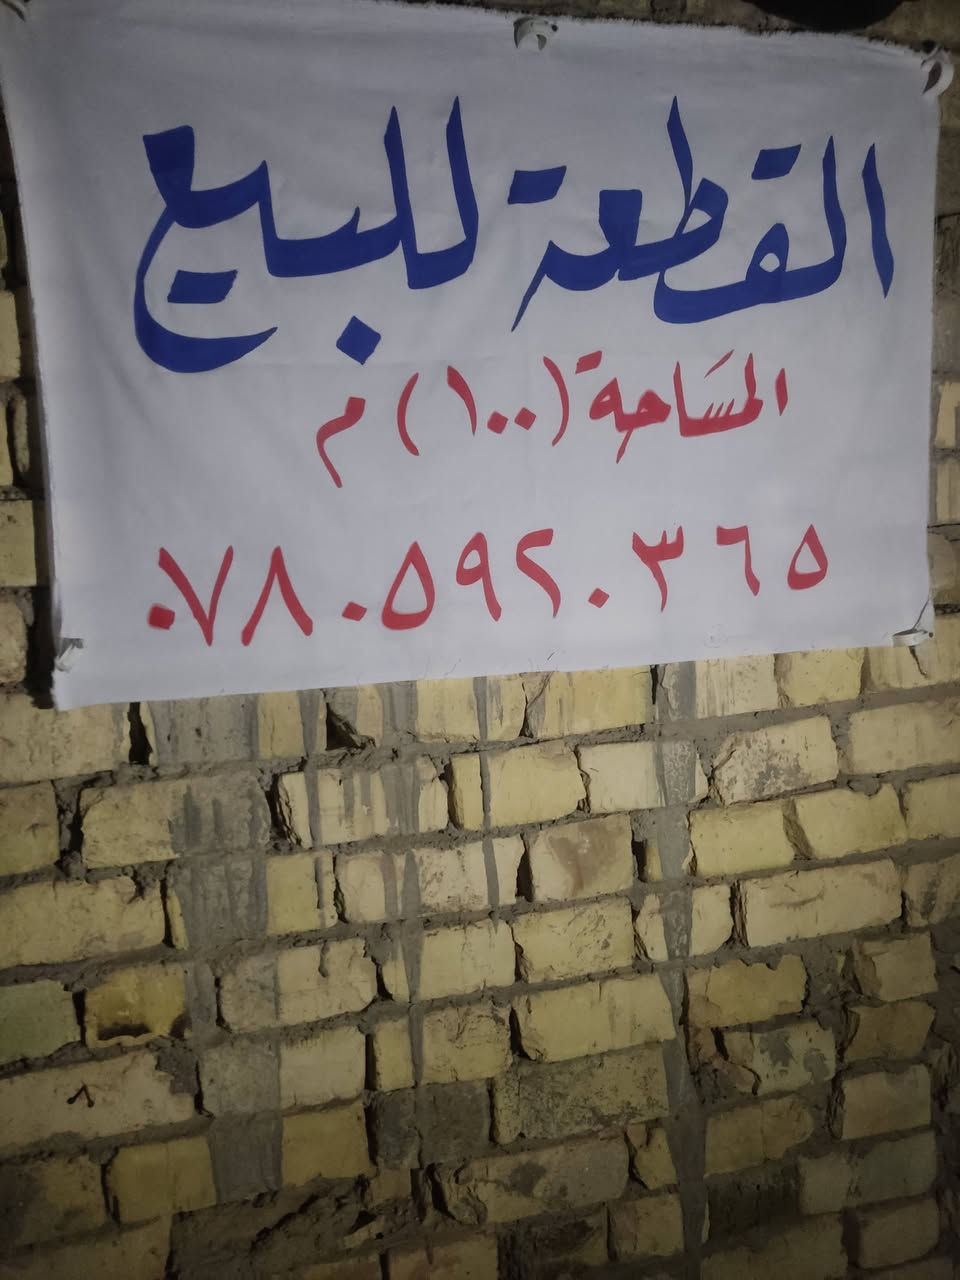 القطعة للبيع
المسَاحة (١٠٠) م
٠٧٨٠٥٩٢٠٣٦٥